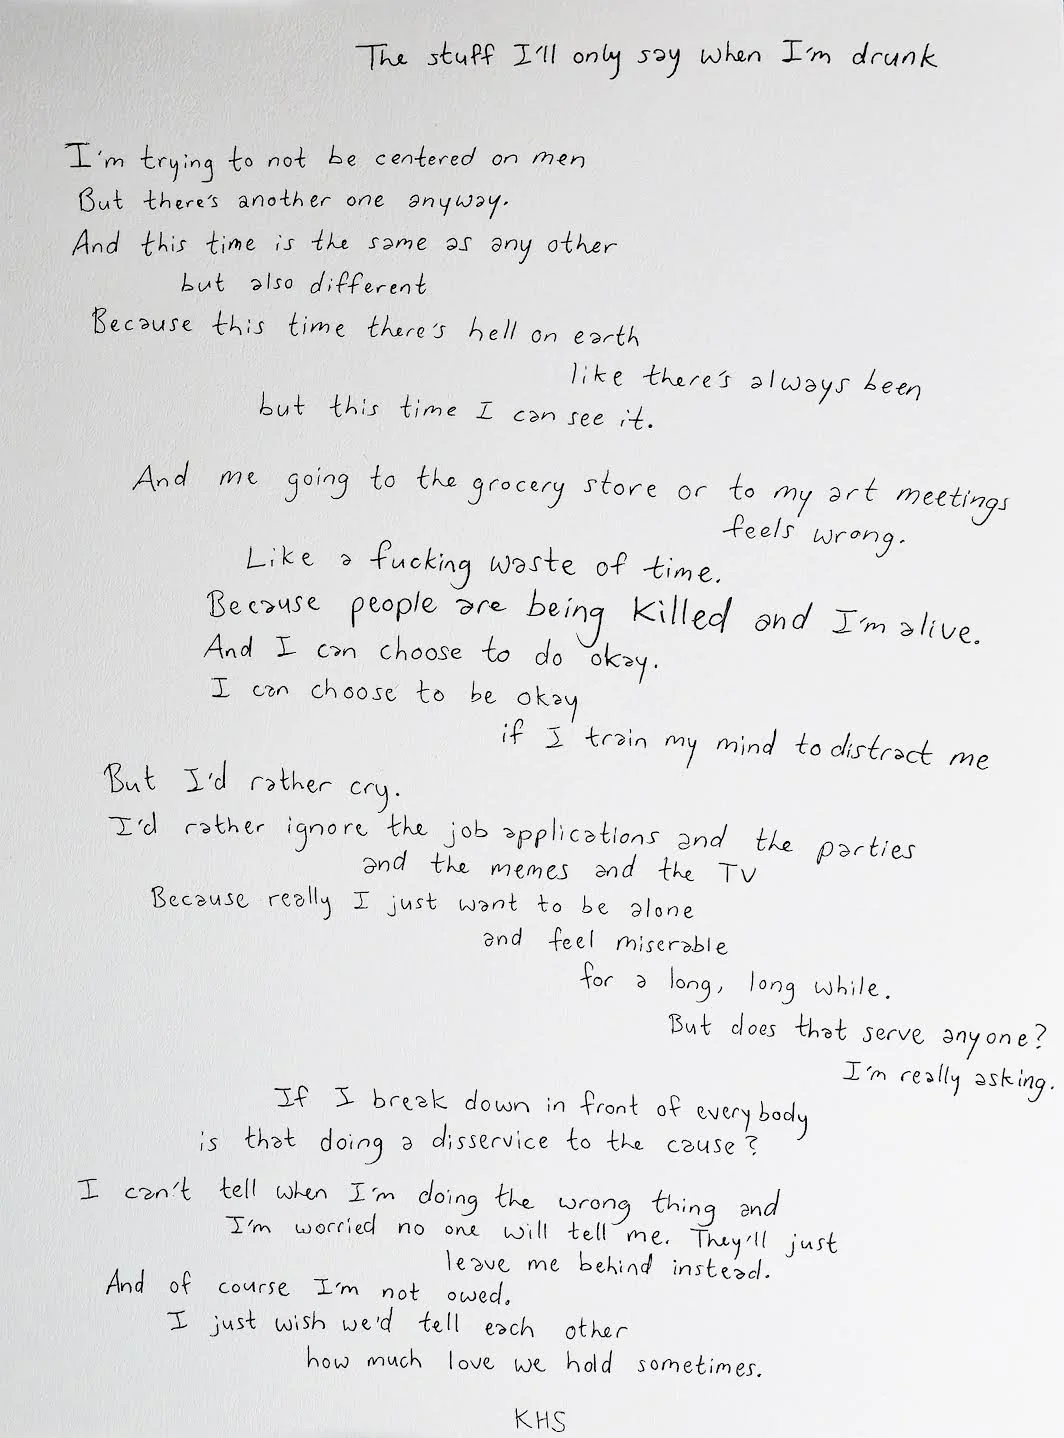 The stuff I'll only say when I'm drunk
I'm trying to not be centered on men
But there's another one anyway.
And this time is the same as any other
but also different
Because this time there's hell on earth
like there's always been
but this time I can see it.
And me going to the grocery store or to my art meetings
feels wrong.
Like a fucking waste of time.
Because people are being killed and I'm alive.
And I can choose to do okay.
I can choose to be okay
if I train my mind to distract me
But I'd rather cry.
I'd rather ignore the job applications and the parties
and the memes and the TV
Because really I just want to be alone
and feel miserable
for a long, long while.
But does that serve anyone?
I'm really asking.
If I break down in front of everybody
is that doing a disservice to the cause?
I can't tell when I'm doing the wrong thing and
I'm worried no one will tell me. They'll just
leave me behind instead.
And of course I'm not owed.
I just wish we'd tell each other
how much love we hold sometimes.
KHS